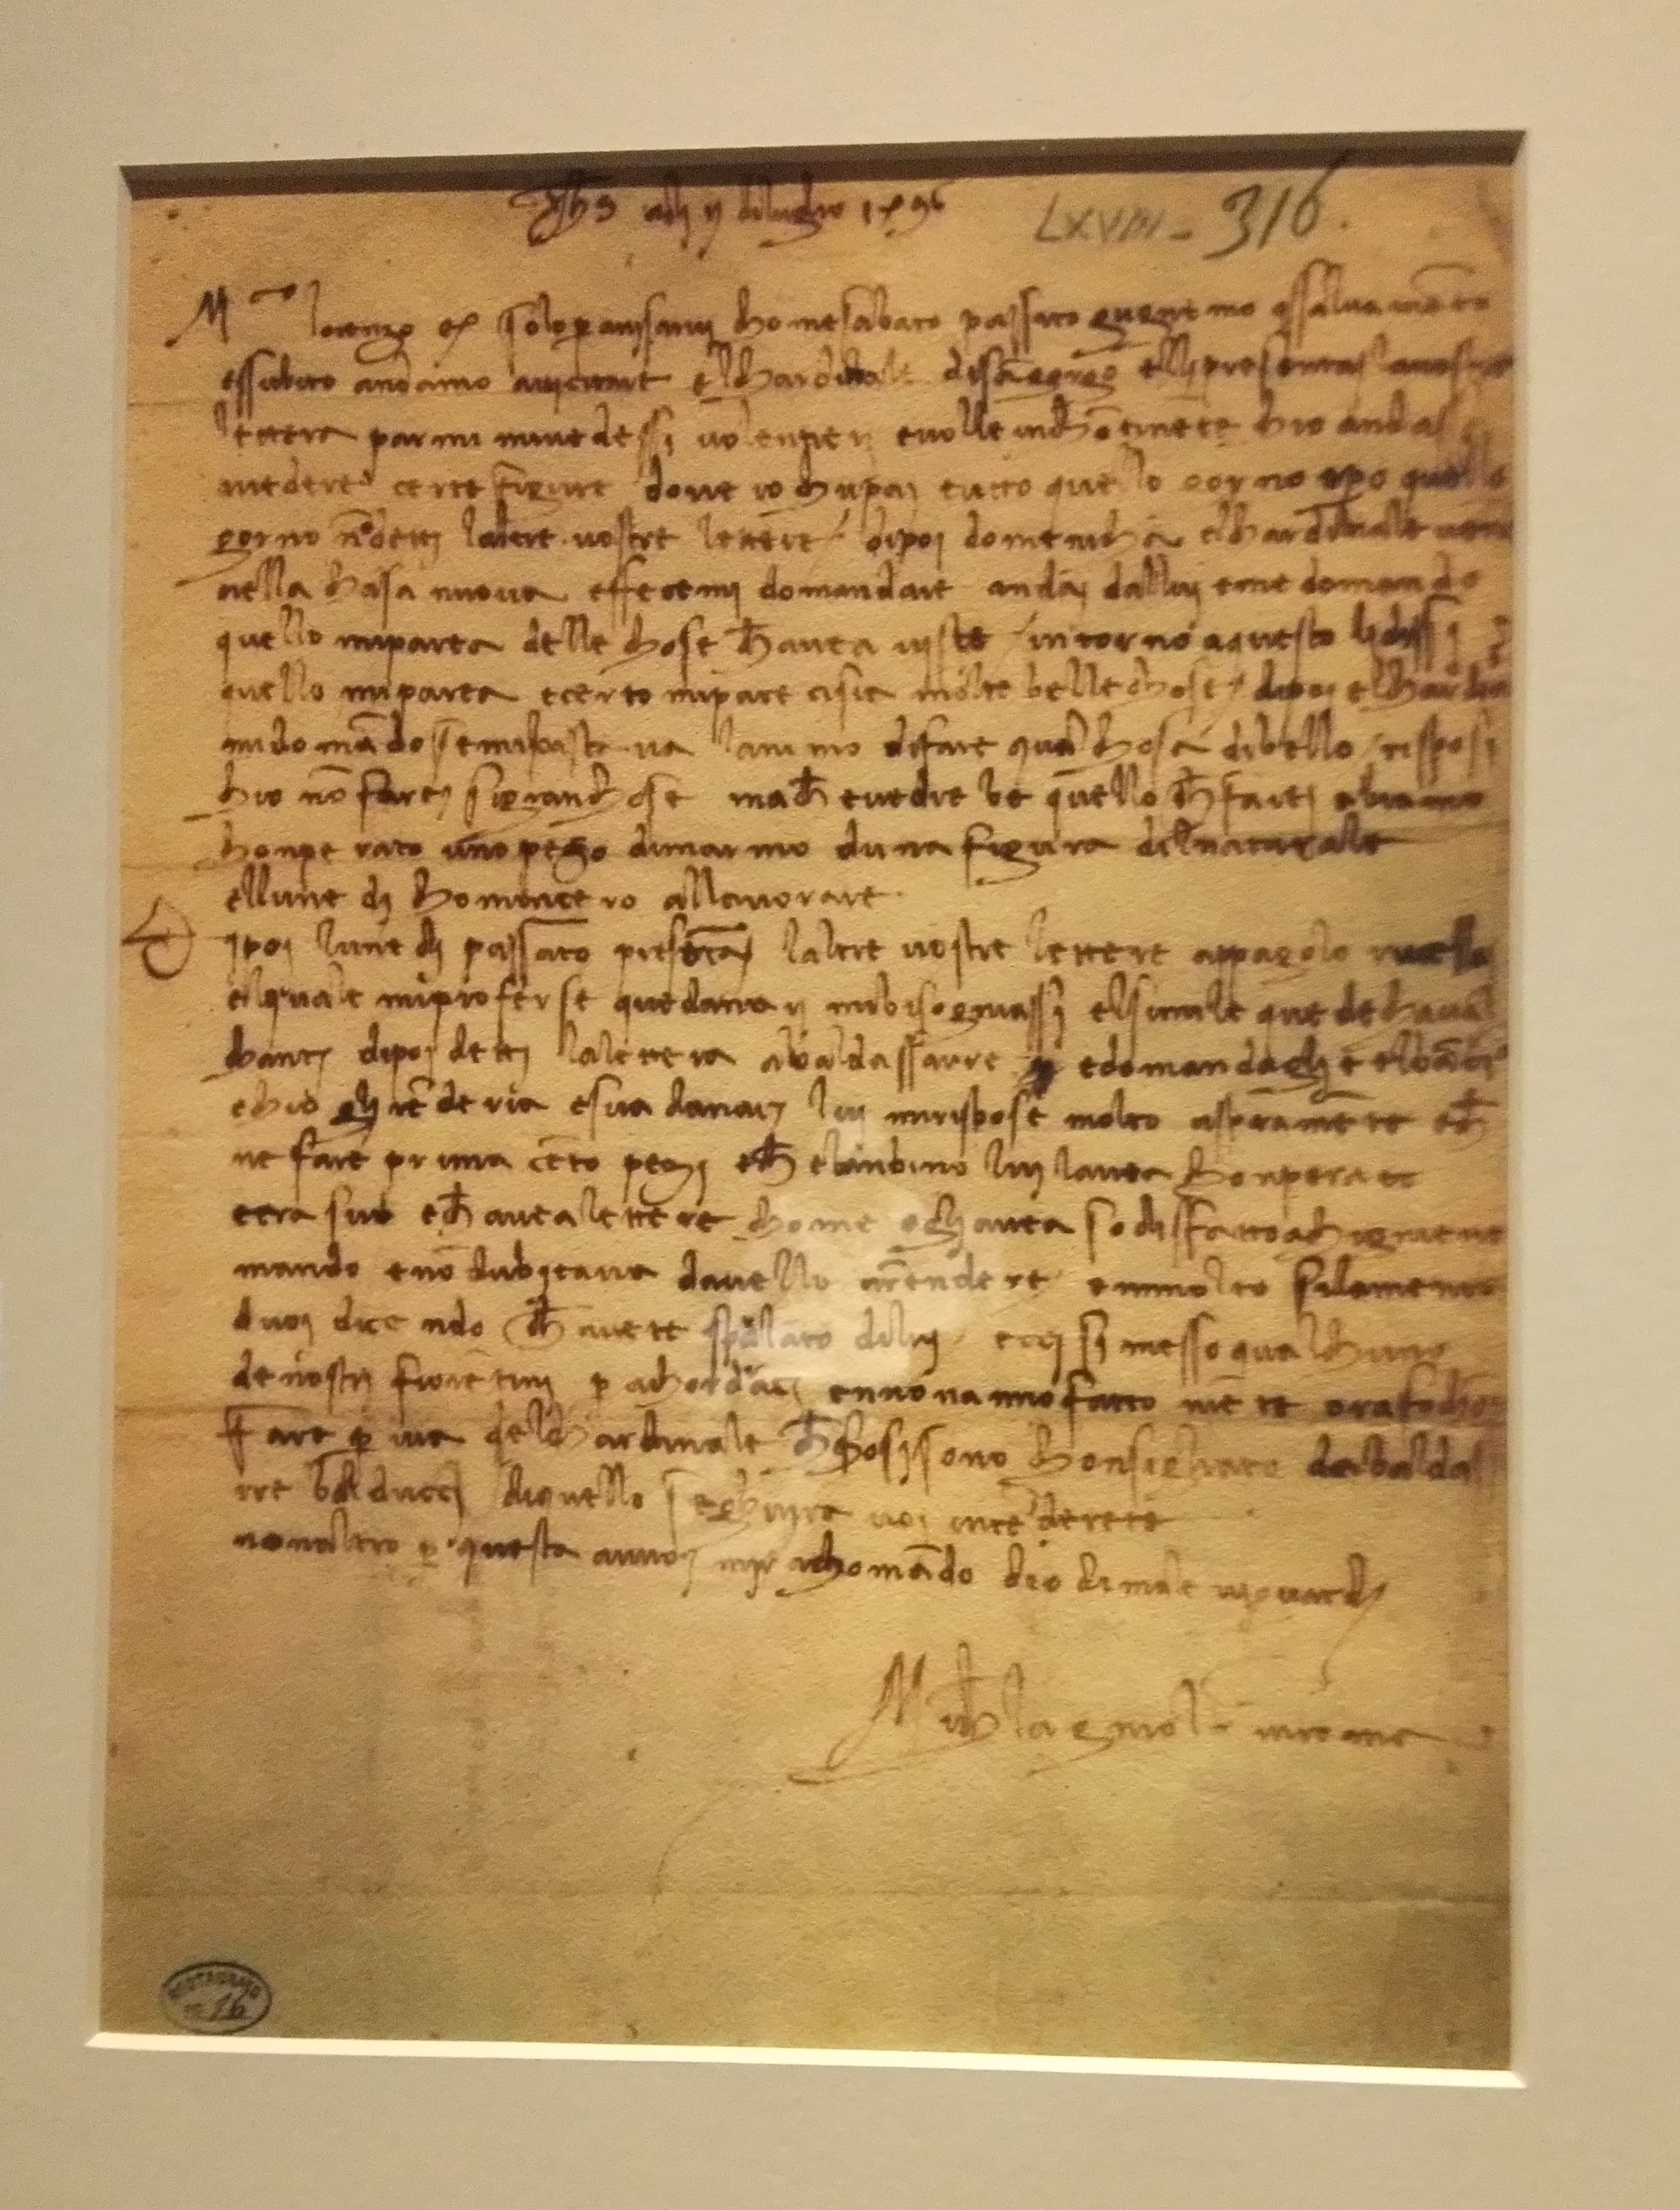 Yhs adj ij diluglio 1496 LXVIII - 316.
Mco lorenzo ec solo p avisarvj chome sabato passato gugnemo a salvamēto
essubito andamo avicitare elchardinale disāgorgo ellj presentaj lavostra
lettera parmi mivedessi volentierj evolle inchōtinēte chio andassi
avedere certe figure dove io chupaj tutto quello gorno epo quello
gorno nō dettj laltre vostre lettere / dipoj domenicha elchardinale venne
nella chasa nuova effecemj domandare andaj dallui eme domandò
quello miparea delle chose ch̄ avea viste / intorno a questo lidissj
quello miparea ecerto mi pare cisia molte belle chose / dipoj elchardinale
mi domādò semibastava lanimo difare qualch chosa dibello / risposi
chio nō farej sigranch chose mach̄ e vedrebe quello ch̄ farej abiamo
chonperato uno pezo dimarmo duna figura delnaturale
ellunedj chomincerò allavorare.
Dipoj lunedj passato presētaj laltre vostre lettere appagolo rucellaj
elquale miproferse que danarj mibisognassj elsimile que de chaval
chantj dipoj dettj la lettera a baldassarre edomandagli elbābino
echio gli rēderia e sua danarj luj mirispose molto asprāmēte ech̄
ne fare prima cēto pezj ech̄ elbanbino luj lavea chonperato
eera suo ech̄ avea lettere chome eglj avea sodisfatto a chi gniene
mandò enō dubitava davello arēdere emmolto silamentò
dj voj dicendo ch̄ avete sparlato dilui eccisi messo qualchuno
de nostrj fiorētini p achordarcj ennonanno fatto niēte ora fo chonto
fare p via del chardinale ch̄ chosj sono chonsigliato dabaldassa
rre balduccj / diquello seguira voj intēderete
nonaltro p questa avvoj mi rachomādo dio di male vi guardj
Michelagniolo in roma
RESTAURATO
n° 16